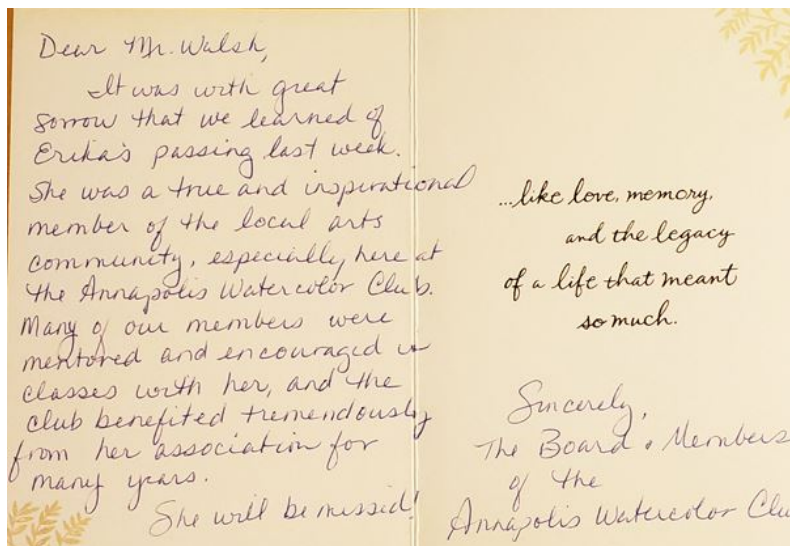 Dear Mr. Walsh,
It was with great
sorrow that we learned of
Erika's passing last week.
She was a true and inspirational
member of the local arts
community, especially here at
the Annapolis Watercolor Club.
Many of our members were
mentored and encouraged in
classes with her, and the
club benefited tremendously
from her association for
many years.
She will be missed!
...like love, memory,
and the legacy
of a life that meant
so much.
Sincerely,
The Board & Members
of the
Annapolis Watercolor Clu